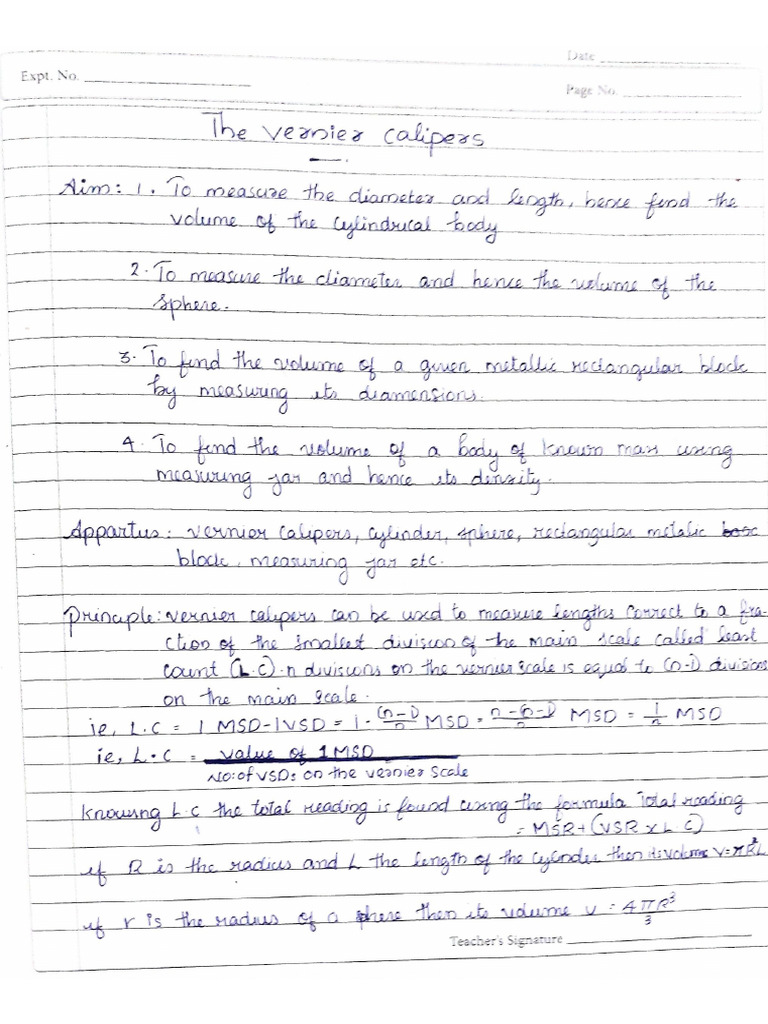 Date
Expt. No.
Page No.
The Vernier Calipers
Aim: 1. To measure the diameter and length, hence find the
volume of the cylindrical body
2. To measure the diameter and hence the volume of the
sphere.
3. To find the volume of a given metallic rectangular block
by measuring its diamensions.
4. To find the volume of a body of known mass using
measuring jar and hence its density.
Appartus: vernier calipers, cylinder, sphere, rectangular metalic
block, measuring jar etc.
Principle: vernier calipers can be used to measure lengths correct to a fra-
ction of the smallest division of the main scale called least
count (L.C). n divisions on the vernier scale is equal to (n-1) divisions
on the main scale.
ie, L.C = 1 MSD-1VSD = 1 - (n-1)/n MSD = n-(n-1)/n MSD = 1/n MSD
ie, L.C = value of 1MSD
No: of VSD: on the vernier scale
Knowing L.C the total reading is found using the formula Total reading
= MSR+(VSR x L.C)
if R is the radius and L the length of the cylinder then its volume V=πR²L
if r is the radius of a sphere then its volume V = 4πR³
3
Teacher's Signature